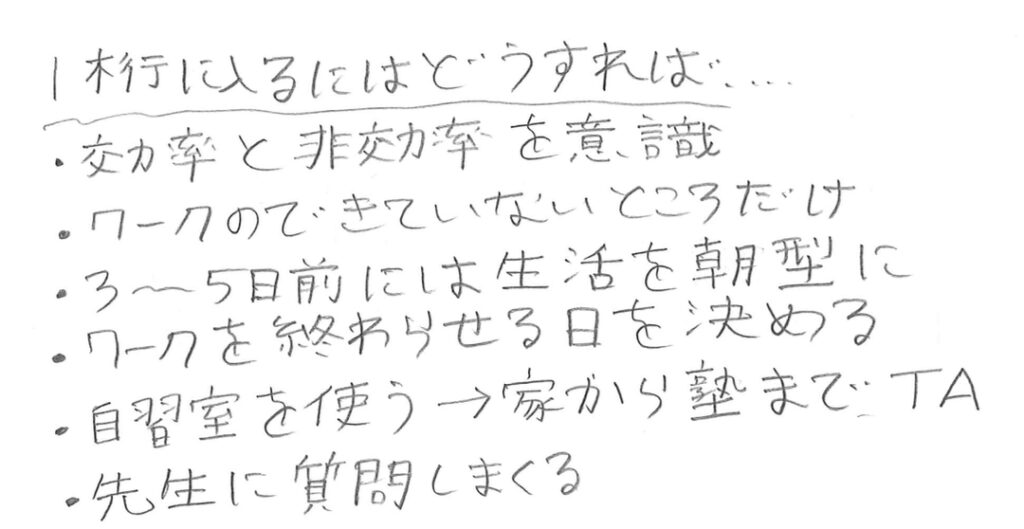 1桁行に入るにはどうすれば....
・効率と非効率を意識
・ワークのできていないところだけ
・3〜5日前には生活を朝型に
・ワークを終わらせる日を決める
・自習室を使う→家から塾までTA
・先生に質問しまくる